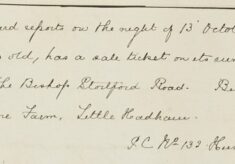 rd reports on the night of 13 Octo
s old, has a sale ticket on its
The Bishop Stortford Road. Be
re Farm, Little Hadham.
P.C. No 132 Hu